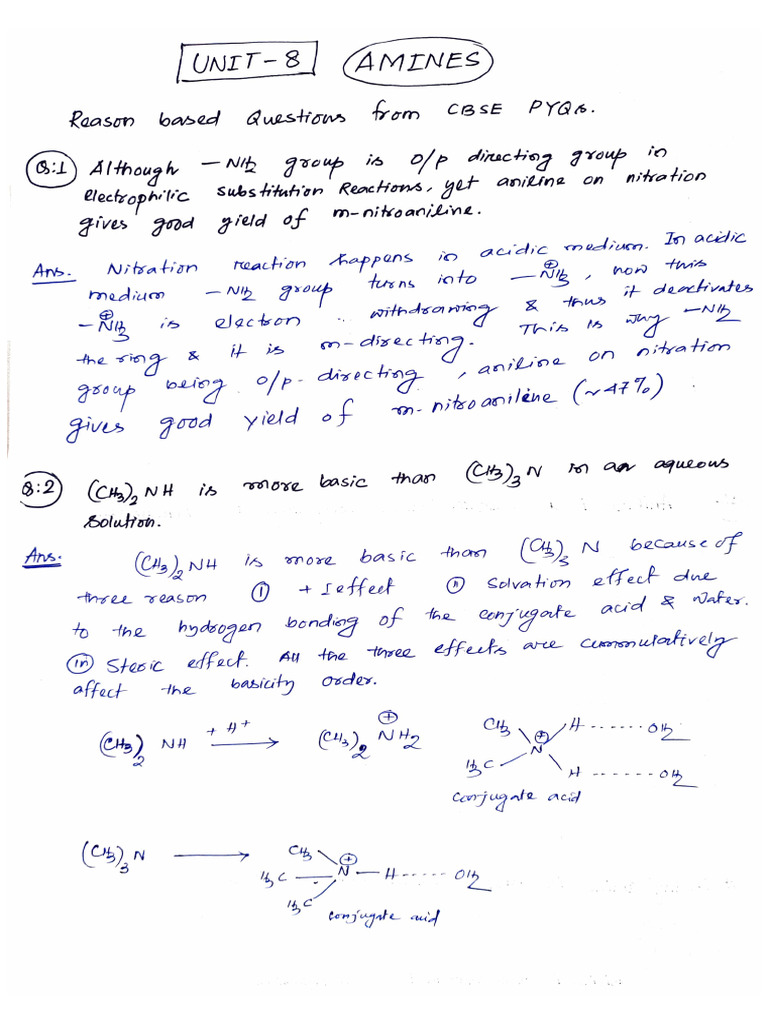 UNIT-8 AMINES
Reason based Questions from CBSE PYQs.
Q:1 Although -NH2 group is o/p directing group in
electrophilic substitution Reactions, yet aniline on nitration
gives good yield of m-nitroaniline.
Ans. Nitration reaction happens in acidic medium. In acidic
medium -NH2 group turns into -N⊕H3, now this
-N⊕H3 is electron withdrawing & thus it deactivates
the ring & it is m-directing. This is why -NH2
group being o/p-directing, aniline on nitration
gives good yield of m-nitroanilene (~47%)
Q:2 (CH3)2 NH is more basic than (CH3)3 N in an aqueous
solution.
Ans. (CH3)2 NH is more basic than (CH3)3 N because of
three reason (i) + I effect (ii) Solvation effect due
to the hydrogen bonding of the conjugate acid & water.
(iii) Steric effect. All the three effects are cummulatively
affect the basicity order.
(CH3)2 NH + H+ → (CH3)2 N⊕H2
CH3 H ------ OH2
N⊕
H3C H ------ OH2
conjugate acid
(CH3)3 N → CH3
H3C — N⊕ — H ------ OH2
H3C
conjugate acid